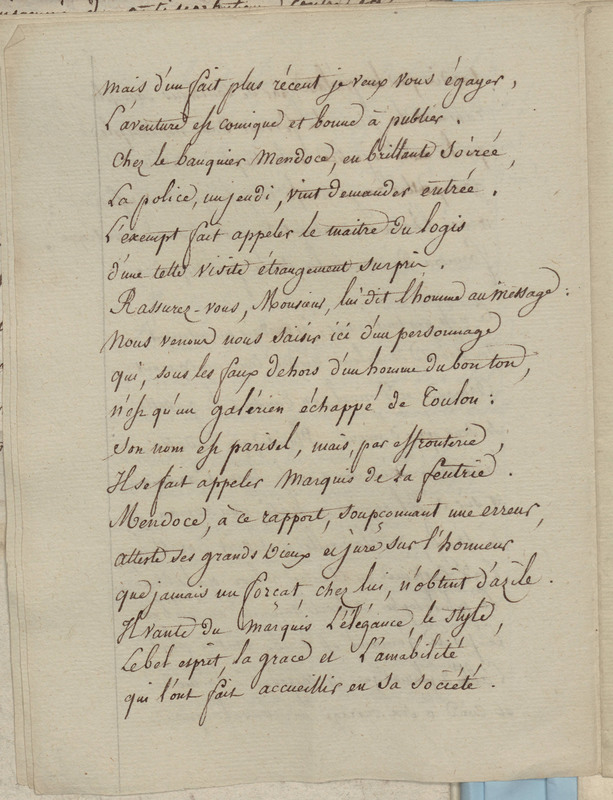 mais d'un fait plus récent je veux vous égayer,
L'aventure est comique et bonne à publier.
Chez le banquier Mendoce, en brillante soirée,
La police, un jeudi, vint demander entrée.
L'exempt fait appeler le maitre du logis
d'une telle visite étrangement surpris.
Rassurez-vous, Monsieur, lui dit l'homme au message:
Nous venons nous saisir ici d'un personnage
qui, sous les faux dehors d'un homme du bon ton,
n'est qu'un galérien échappé de Toulon:
son nom est parisel, mais, par effronterie,
Il se fait appeler Marquis de la feutrie.
Mendoce, à ce rapport, soupçonnant une erreur,
atteste ses grands Dieux et jure sur l'honneur
que jamais un forcat, chez lui, n'obtint d'azile.
Il vante du marquis L'élégance, le style,
Le bel esprit la grace et L'amabilité
qui l'ont fait accueillir en sa société.